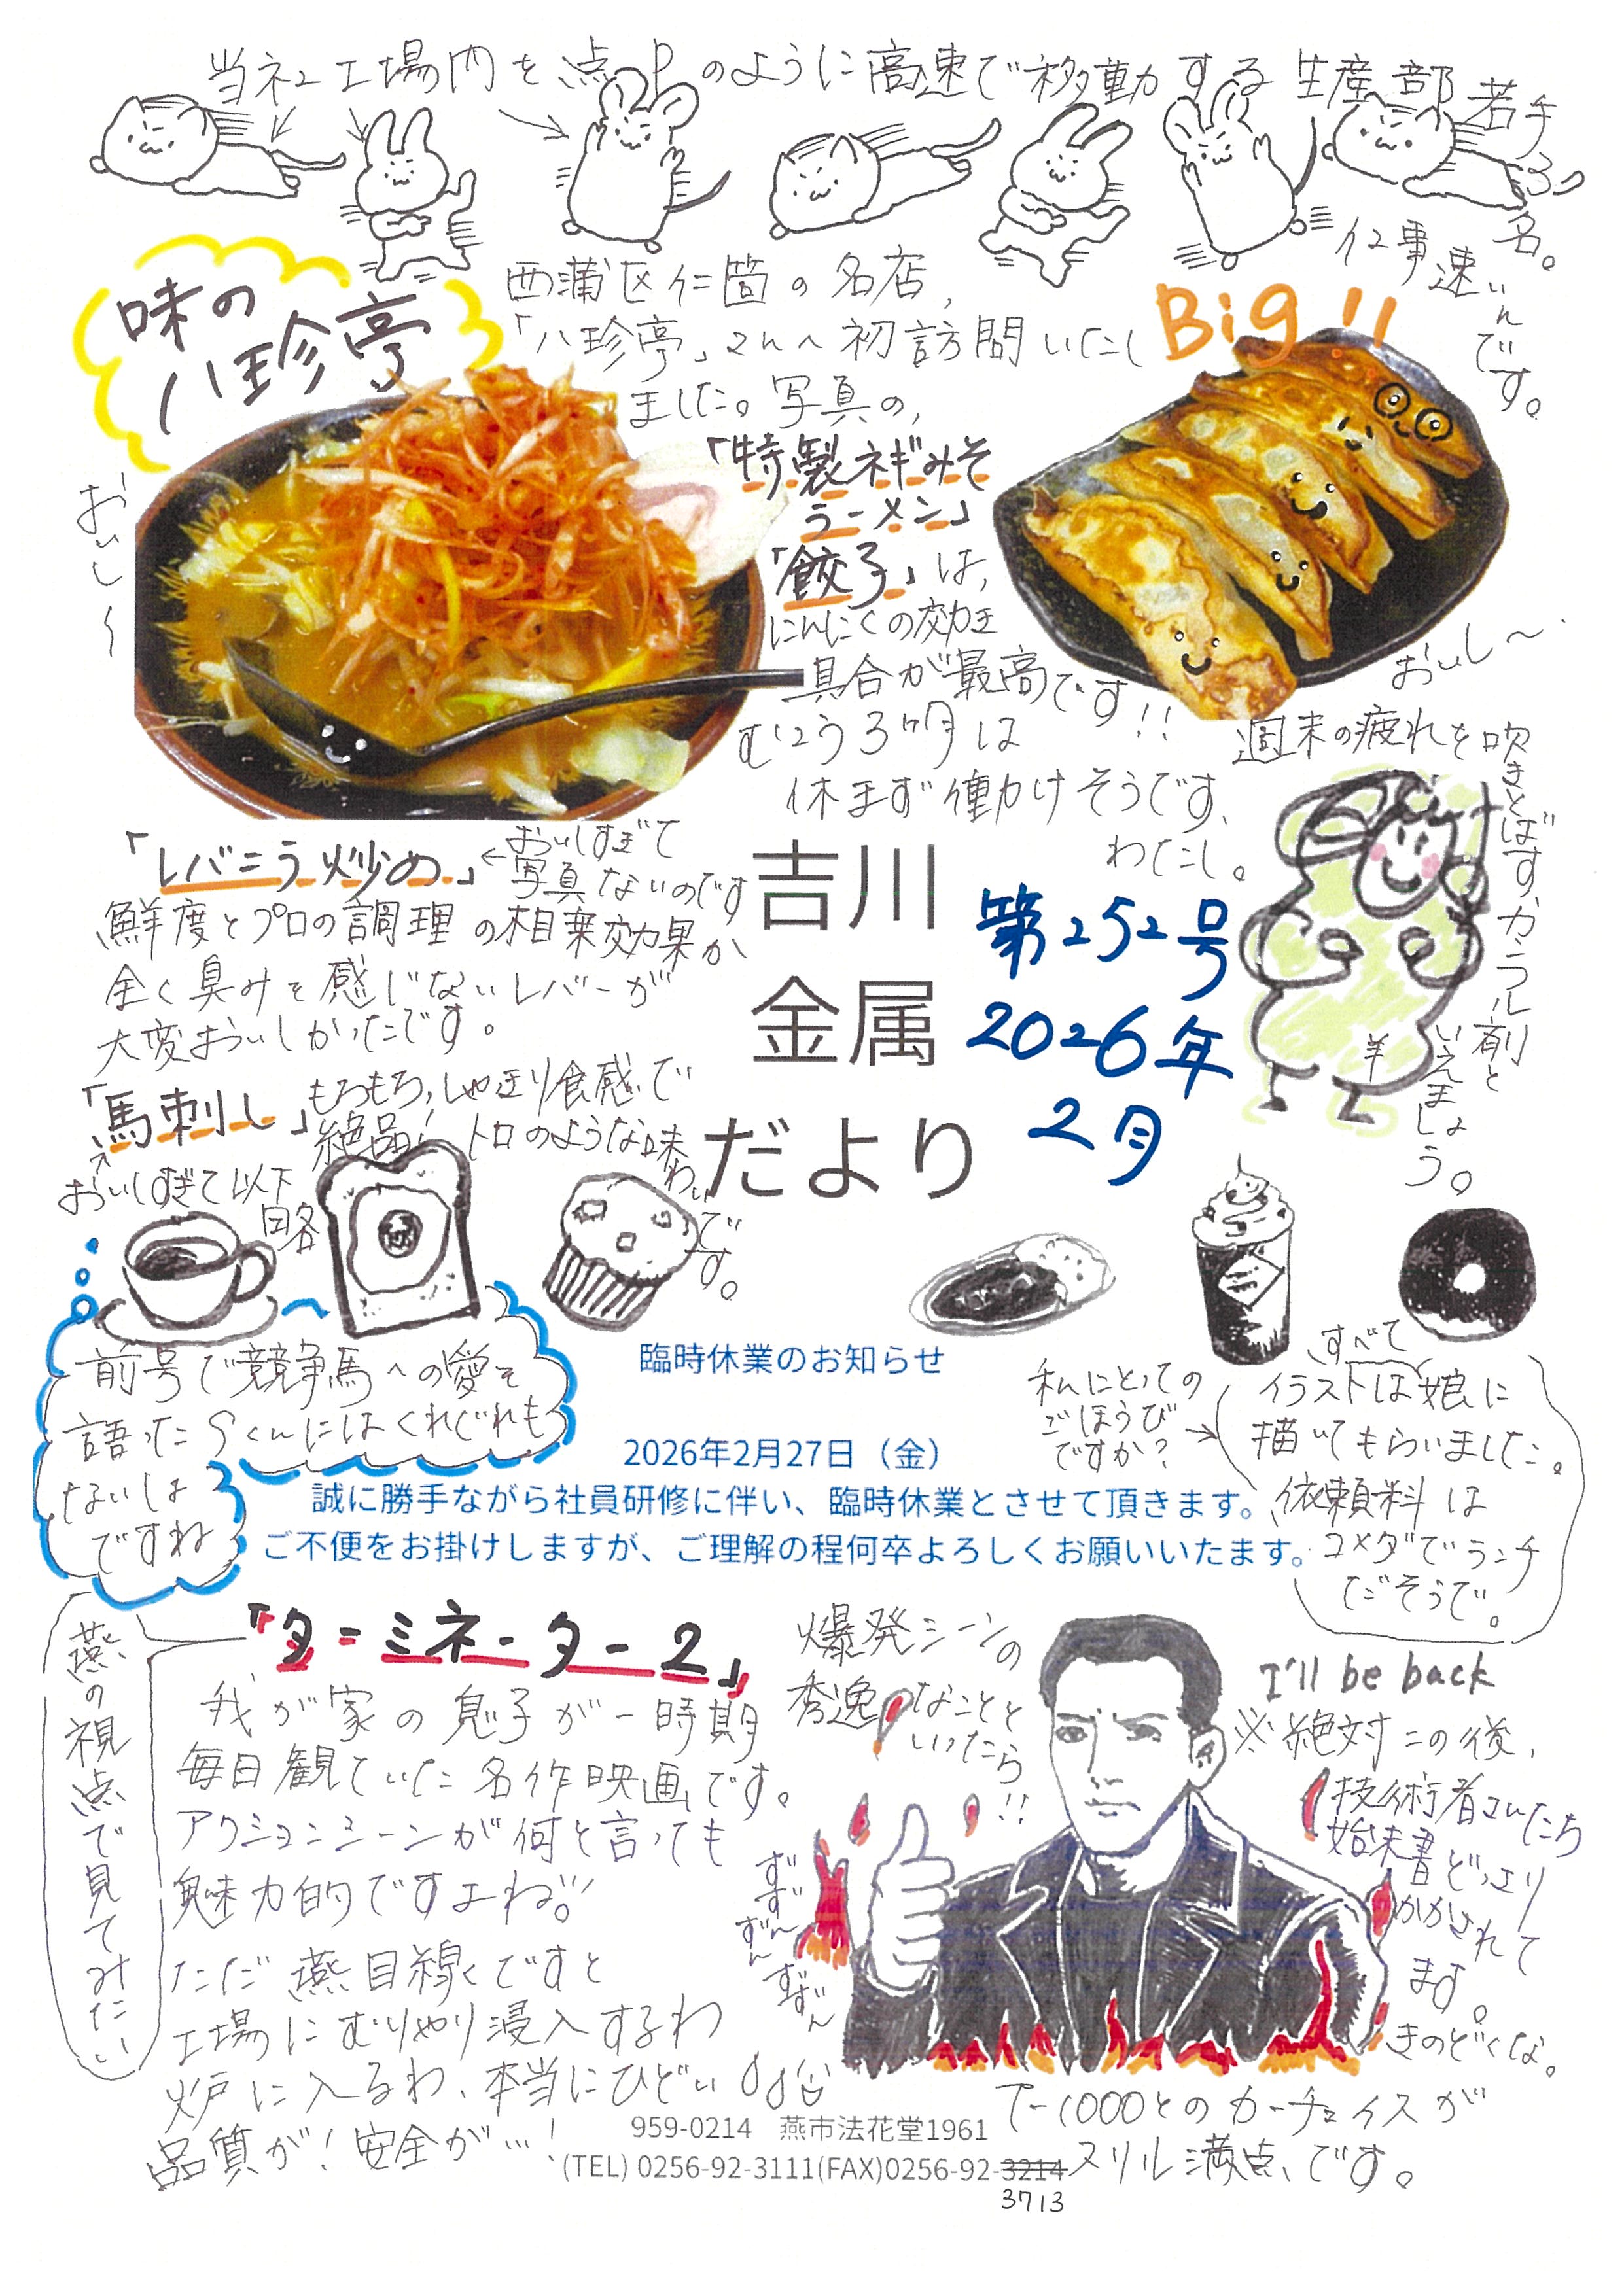 当社工場内を点Pのように高速で移動する生産部若手3名。
仕事速いんです。
味の
八珍亭
西蒲区仁箇の名店、
「八珍亭」さんへ初訪問いたし
ました。写真の、
「特製ネギみそ
ラーメン」
「餃子」は、
にんにくの効き
具合が最高です!!
むこう3ヶ月は
休まず働けそうです、
わたし。
Big!!
おいし〜
おいし〜
週末の疲れを吹きとばすカラフル剤と
いえましょう。
羊
「レバニラ炒め」
←おいしすぎて
写真ないのです
鮮度とプロの調理の相乗効果か
全く臭みを感じないレバーが
大変おいしかったです。
「馬刺し」
もちもち、しゃきり食感で
絶品!トロのような味わいです。
おいしすぎて以下
略
吉川
金属
だより
第252号
2026年
2月
前号で競争馬への愛を
語ったSくんにはくれぐれも
ないしょ
ですね
臨時休業のお知らせ
2026年2月27日（金）
誠に勝手ながら社員研修に伴い、臨時休業とさせて頂きます。
ご不便をお掛けしますが、ご理解の程何卒よろしくお願いいたます。
私にとっての
ごほうび
ですか?
すべて
イラストは娘に
描いてもらいました。
依頼料は
コメダでランチ
だそうで。
燕の視点で見てみたい
「ターミネーター2」
我が家の息子が一時期
毎日観ていた名作映画です。
アクションシーンが何と言っても
魅力的ですよね!!
ただ燕目線ですと
工場にむりやり浸入するわ
炉に入るわ、本当にひどい
品質が!安全が…!
爆発シーンの
秀逸なことと
いったら!!
ずずんずんずずん
I'll be back
※絶対この後、
技術者さんたち
始末書どっさり
かかされて
ます。
きのどくな。
T-1000とのカーチェイスが
スリル満点です。
959-0214　燕市法花堂1961
(TEL) 0256-92-3111(FAX)0256-92-3214
3713